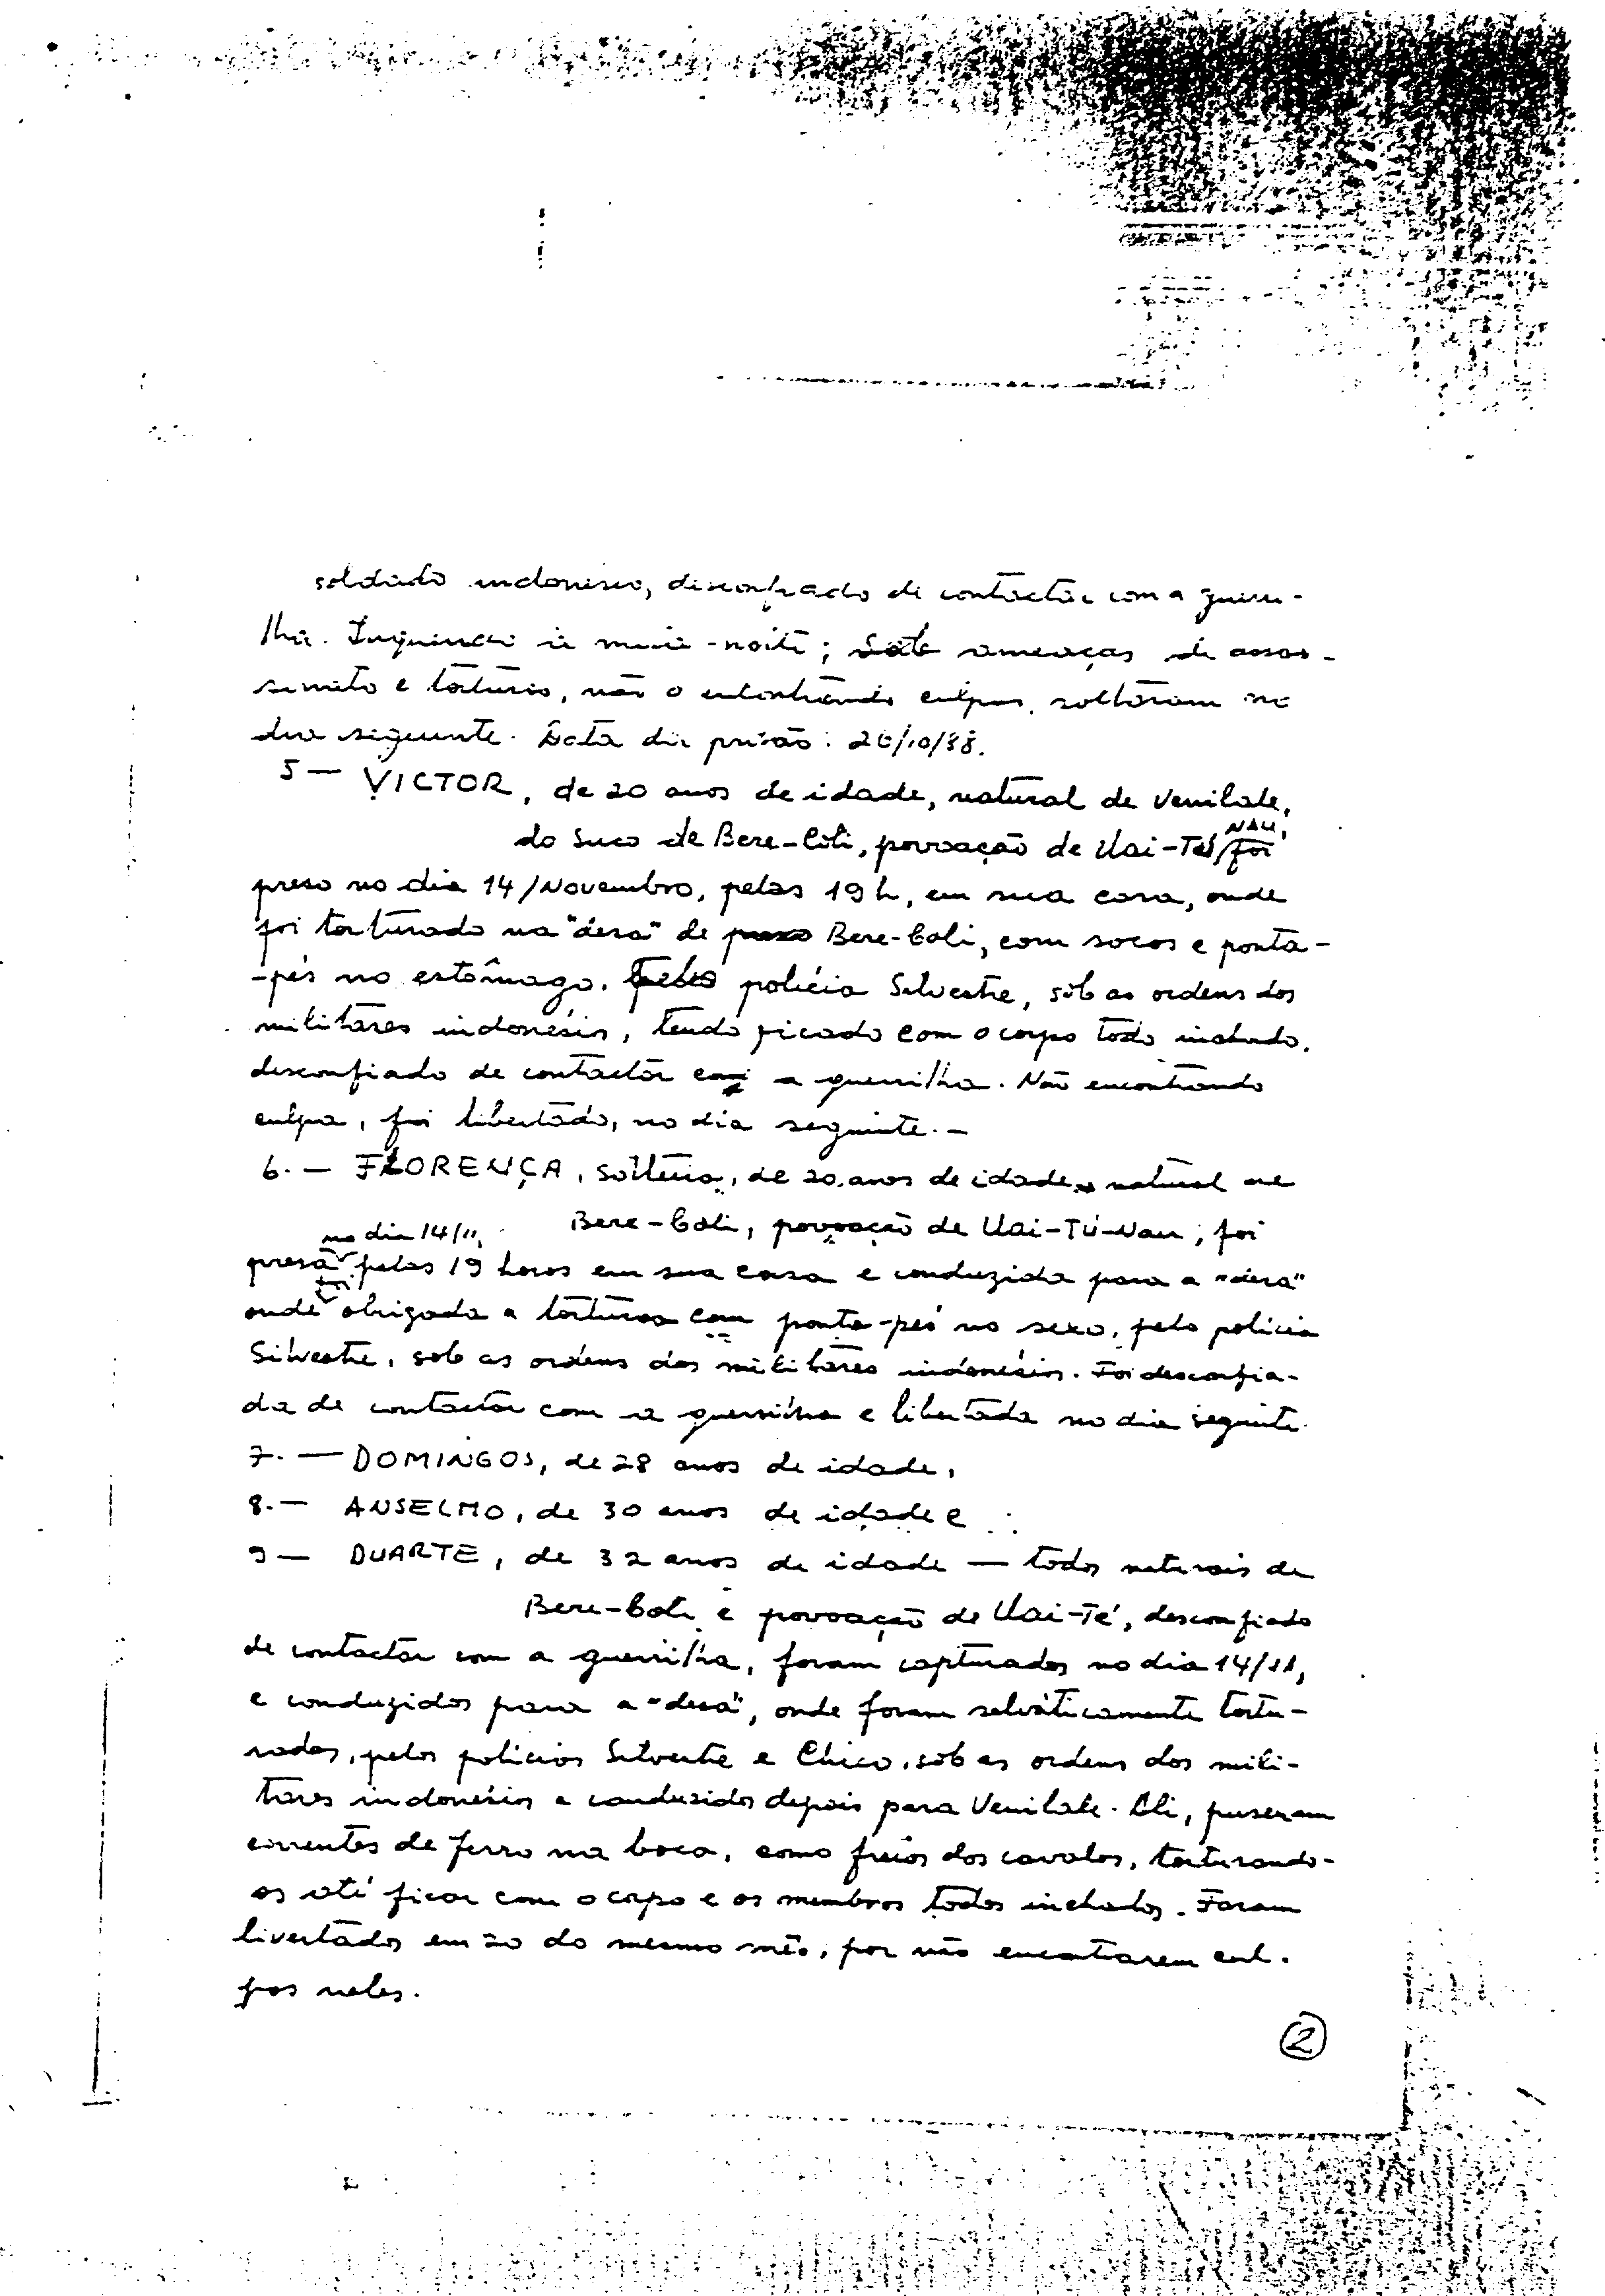 soldado indonésio, desconfiado de contactar com a guerri-
lha. meia-noite; ameaças de assas-
sinato e torturas, não o encontrando culpas, soltaram no
dia seguinte. Data da prisão:
5 — VICTOR, de 20 anos de idade, natural de Venilale,
do Suco de Bere-Coli, povoação de Uai-Té NAU, foi
preso no dia 14/Novembro, pelas 19 h, em sua casa, onde
foi torturado na "desa" de Bere-Coli, com socos e ponta-
-pés no estômago, pelo polícia Silvestre, sob as ordens dos
militares indonésios, tendo ficado com o corpo todo inchado.
desconfiado de contactar com a guerrilha. Não encontrando
culpa, foi libertado, no dia seguinte. —
6. — FLORENÇA, solteira, de 20 anos de idade, natural de
Bere-Coli, povoação de Uai-Té-Nau, foi
presa no dia 14/11, pelas 19 horas em sua casa e conduzida para a "desa"
onde foi obrigada a torturas com ponta-pés no sexo, pelo polícia
Silvestre, sob as ordens dos militares indonésios. Foi desconfia-
da de contactar com a guerrilha e libertada no dia seguinte.
7. — DOMINGOS, de 28 anos de idade,
8. — ANSELMO, de 30 anos de idade e
9 — DUARTE, de 32 anos de idade — todos naturais de
Bere-Coli e povoação de Uai-Té, desconfiado
de contactar com a guerrilha, foram capturados no dia 14/11,
e conduzidos para a "desa", onde foram selváticamente tortu-
rados, pelos polícias Silvestre e Chico, sob as ordens dos mili-
tares indonésios e conduzidos depois para Venilale. Ali, puseram
correntes de ferro na boca, como freios dos cavalos, torturando-
os até ficar com o corpo e os membros todos inchados. Foram
livertados em 20 do mesmo mês, por não encontrarem cul-
pas neles.
2